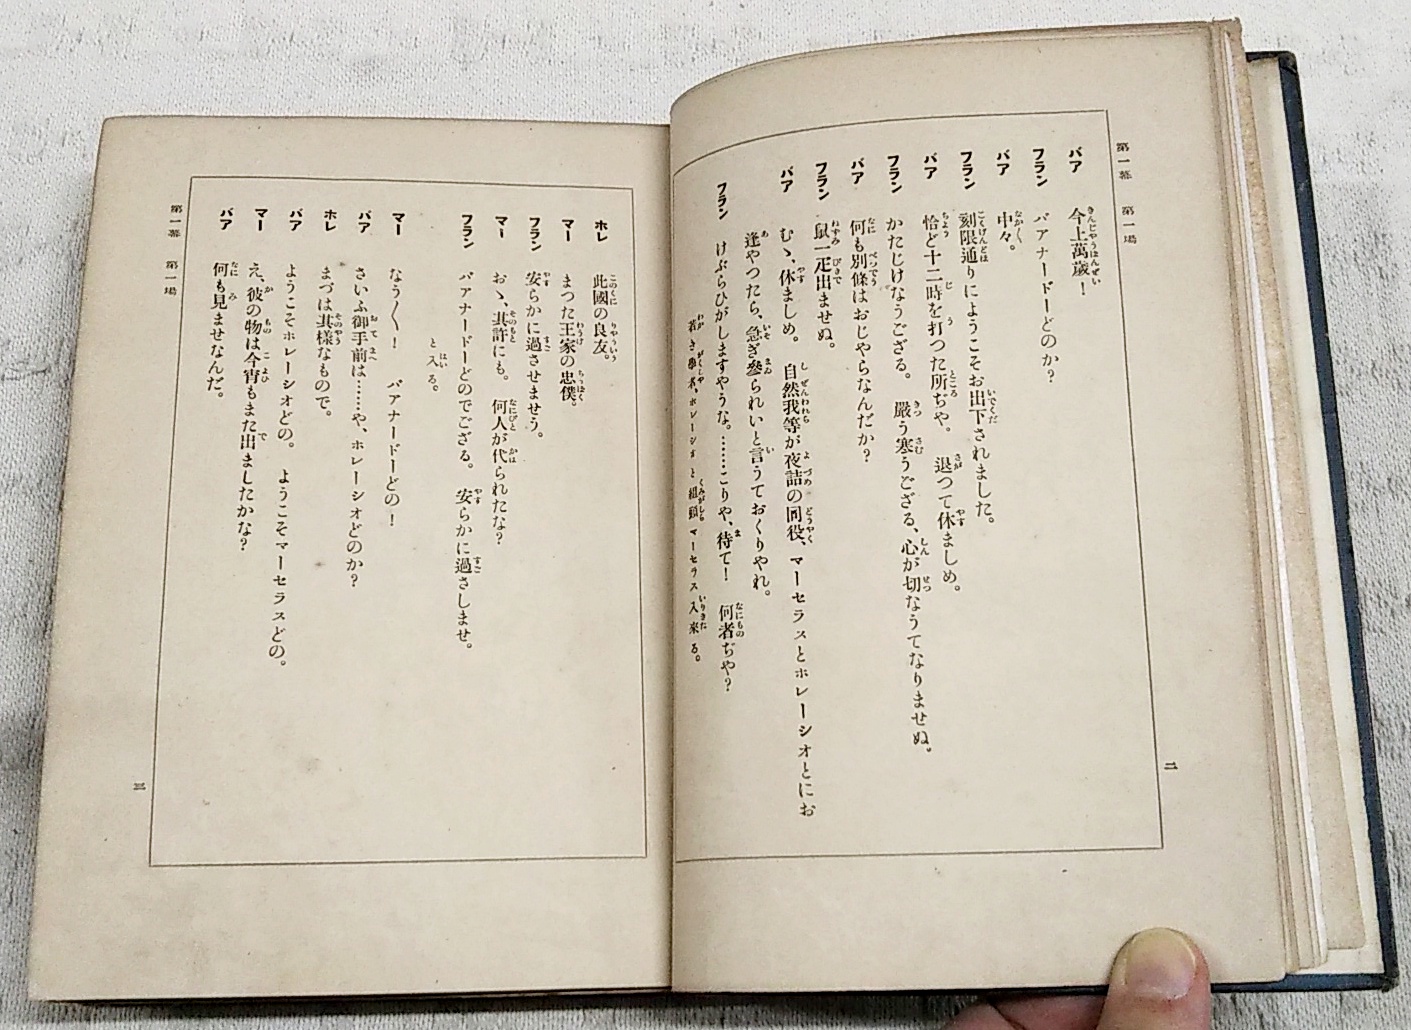 第一幕 第一場
バア 今上萬歲！
フラン バアナードーどのか？
バア 中々。
フラン 刻限通りにようこそお出下されました。
バア 恰ど十二時を打つた所ぢや。 退つて休ましめ。
フラン かたじけなうござる。 嚴う寒うござる、心が切なうてなりませぬ。
バア 何も別條はおじやらなんだか？
フラン 鼠一疋出ませぬ。
バア むゝ、休ましめ。 自然我等が夜詰の同役、マーセラスとホレーシオとにお
逢やつたら、急ぎ參られいと言うておくりやれ。
フラン けぶらひがしますやうな。……こりや、待て！ 何者ぢや？
若き學者、ホレーシオと組頭マーセラス入來る。
二
ホレ 此國の良友。
マー まつた王家の忠僕。
フラン 安らかに過させませう。
マー おゝ、其許にも。 何人が代られたな？
フラン バアナードーどのでござる。 安らかに過さしませ。
と入る。
マー なう〱！ バアナードーどの！
バア さいふ御手前は……や、ホレーシオどのか？
ホレ まづは其樣なもので。
バア ようこそホレーシオどの。 ようこそマーセラスどの。
マー え、彼の物は今宵もまた出ましたかな？
バア 何も見ませなんだ。
第一幕 第一場
三